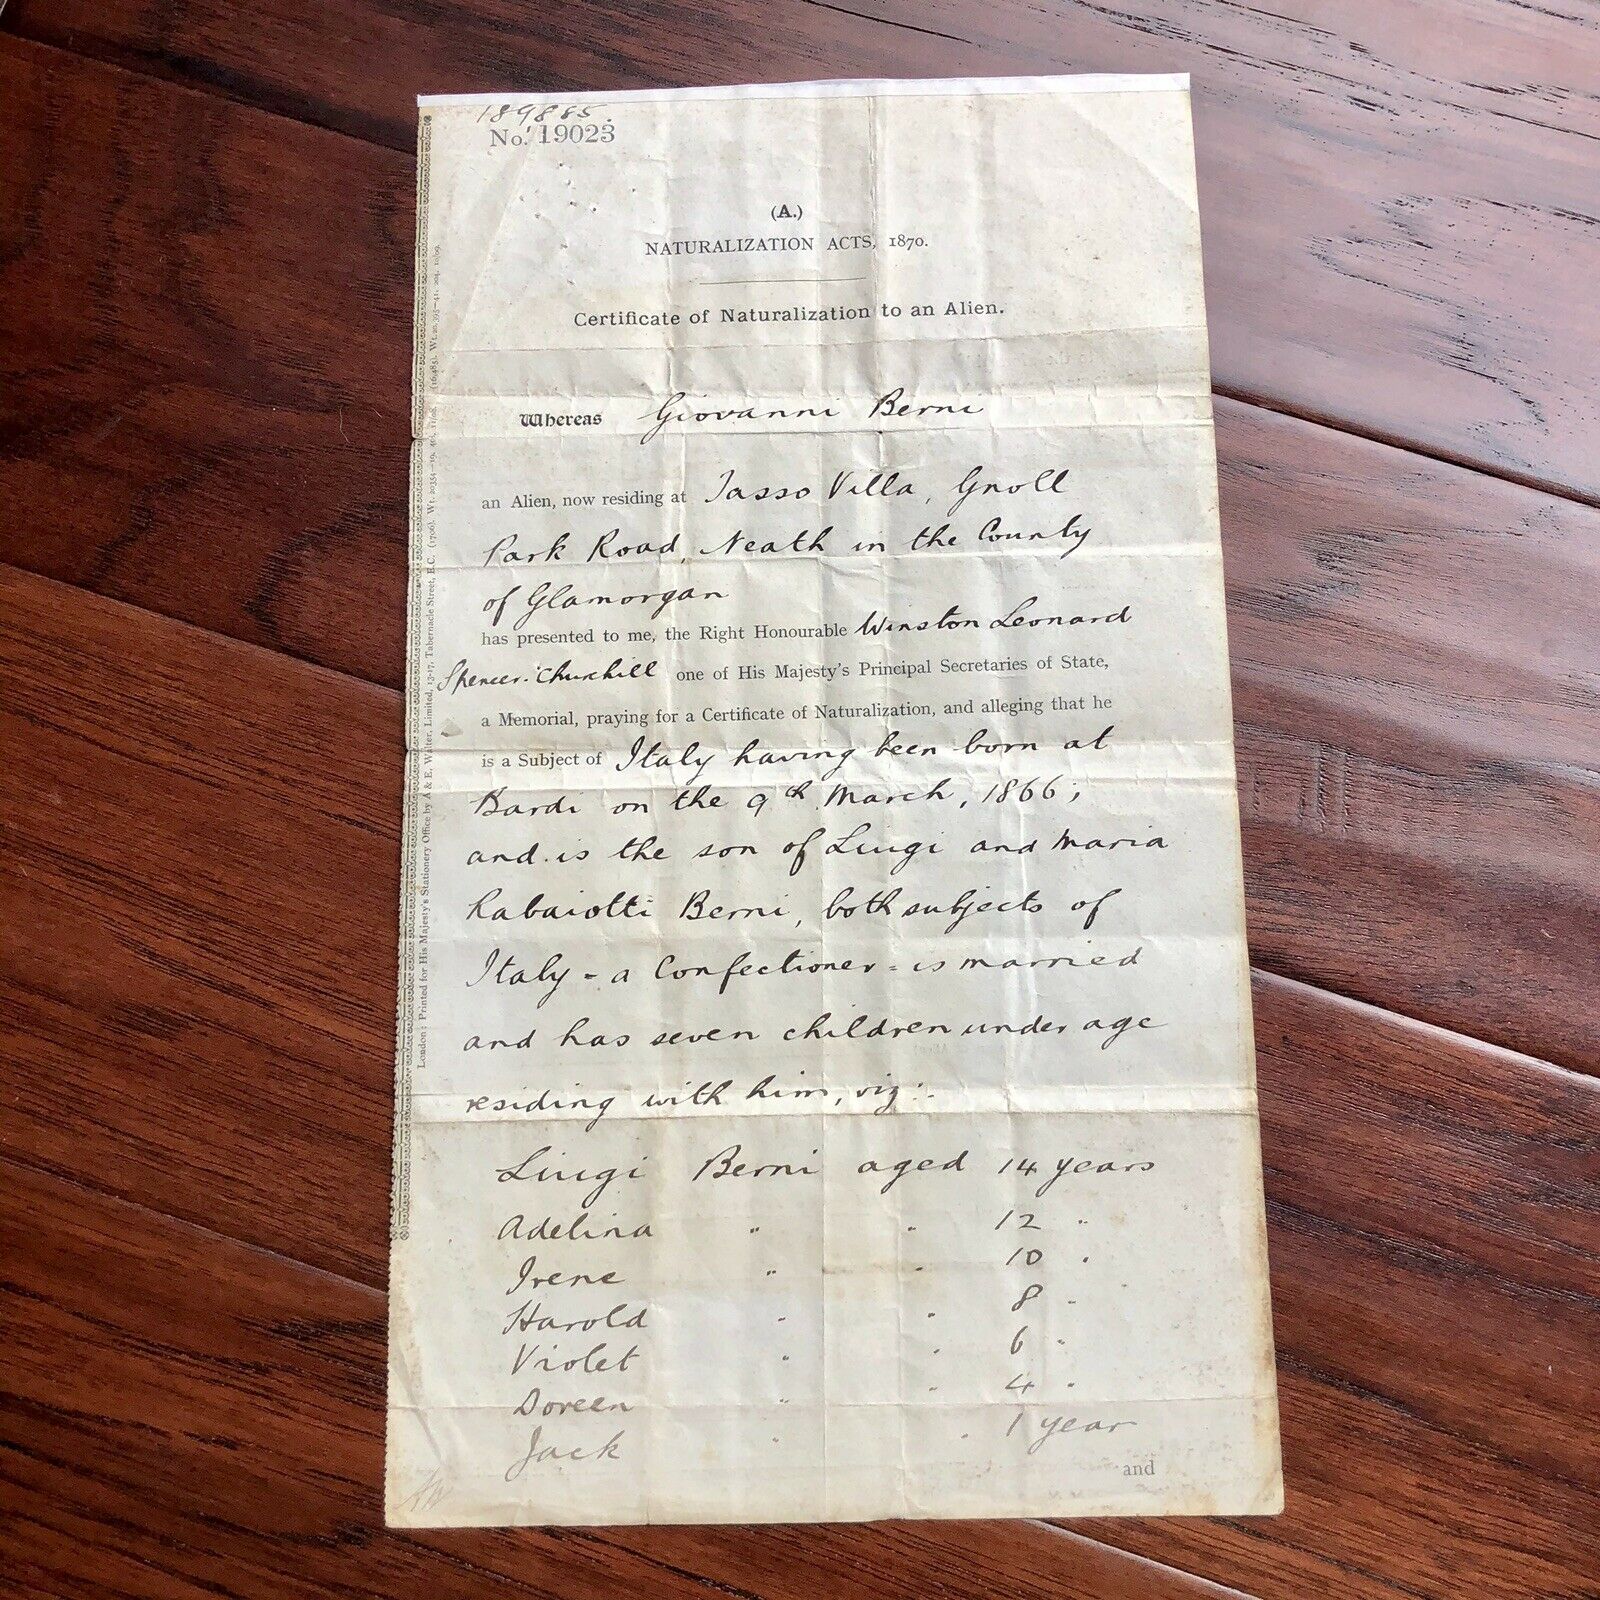 189885.
No. 19023
(A.)
NATURALIZATION ACTS, 1870.
Certificate of Naturalization to an Alien.
Whereas Giovanni Berni
an Alien, now residing at Tasso Villa, Gnoll
Park Road, Neath in the County
of Glamorgan
has presented to me, the Right Honourable Winston Leonard
Spencer-Churchill one of His Majesty's Principal Secretaries of State,
a Memorial, praying for a Certificate of Naturalization, and alleging that he
is a Subject of Italy having been born at
Bardi on the 9th March, 1866;
and is the son of Liugi and Maria
Rabaiotti Berni, both subjects of
Italy - a Confectioner - is married
and has seven children under age
residing with him, viz:-
Liugi Berni aged 14 years
Adelina " " 12 "
Irene " " 10 "
Harold " " 8 "
Violet " " 6 "
Doreen " " 4 "
Jack " " 1 year
and
London: Printed for His Majesty's Stationery Office by A & E. Walter, Limited, 13-17, Tabernacle Street, E.C. (1706). Wt. 20354-19.